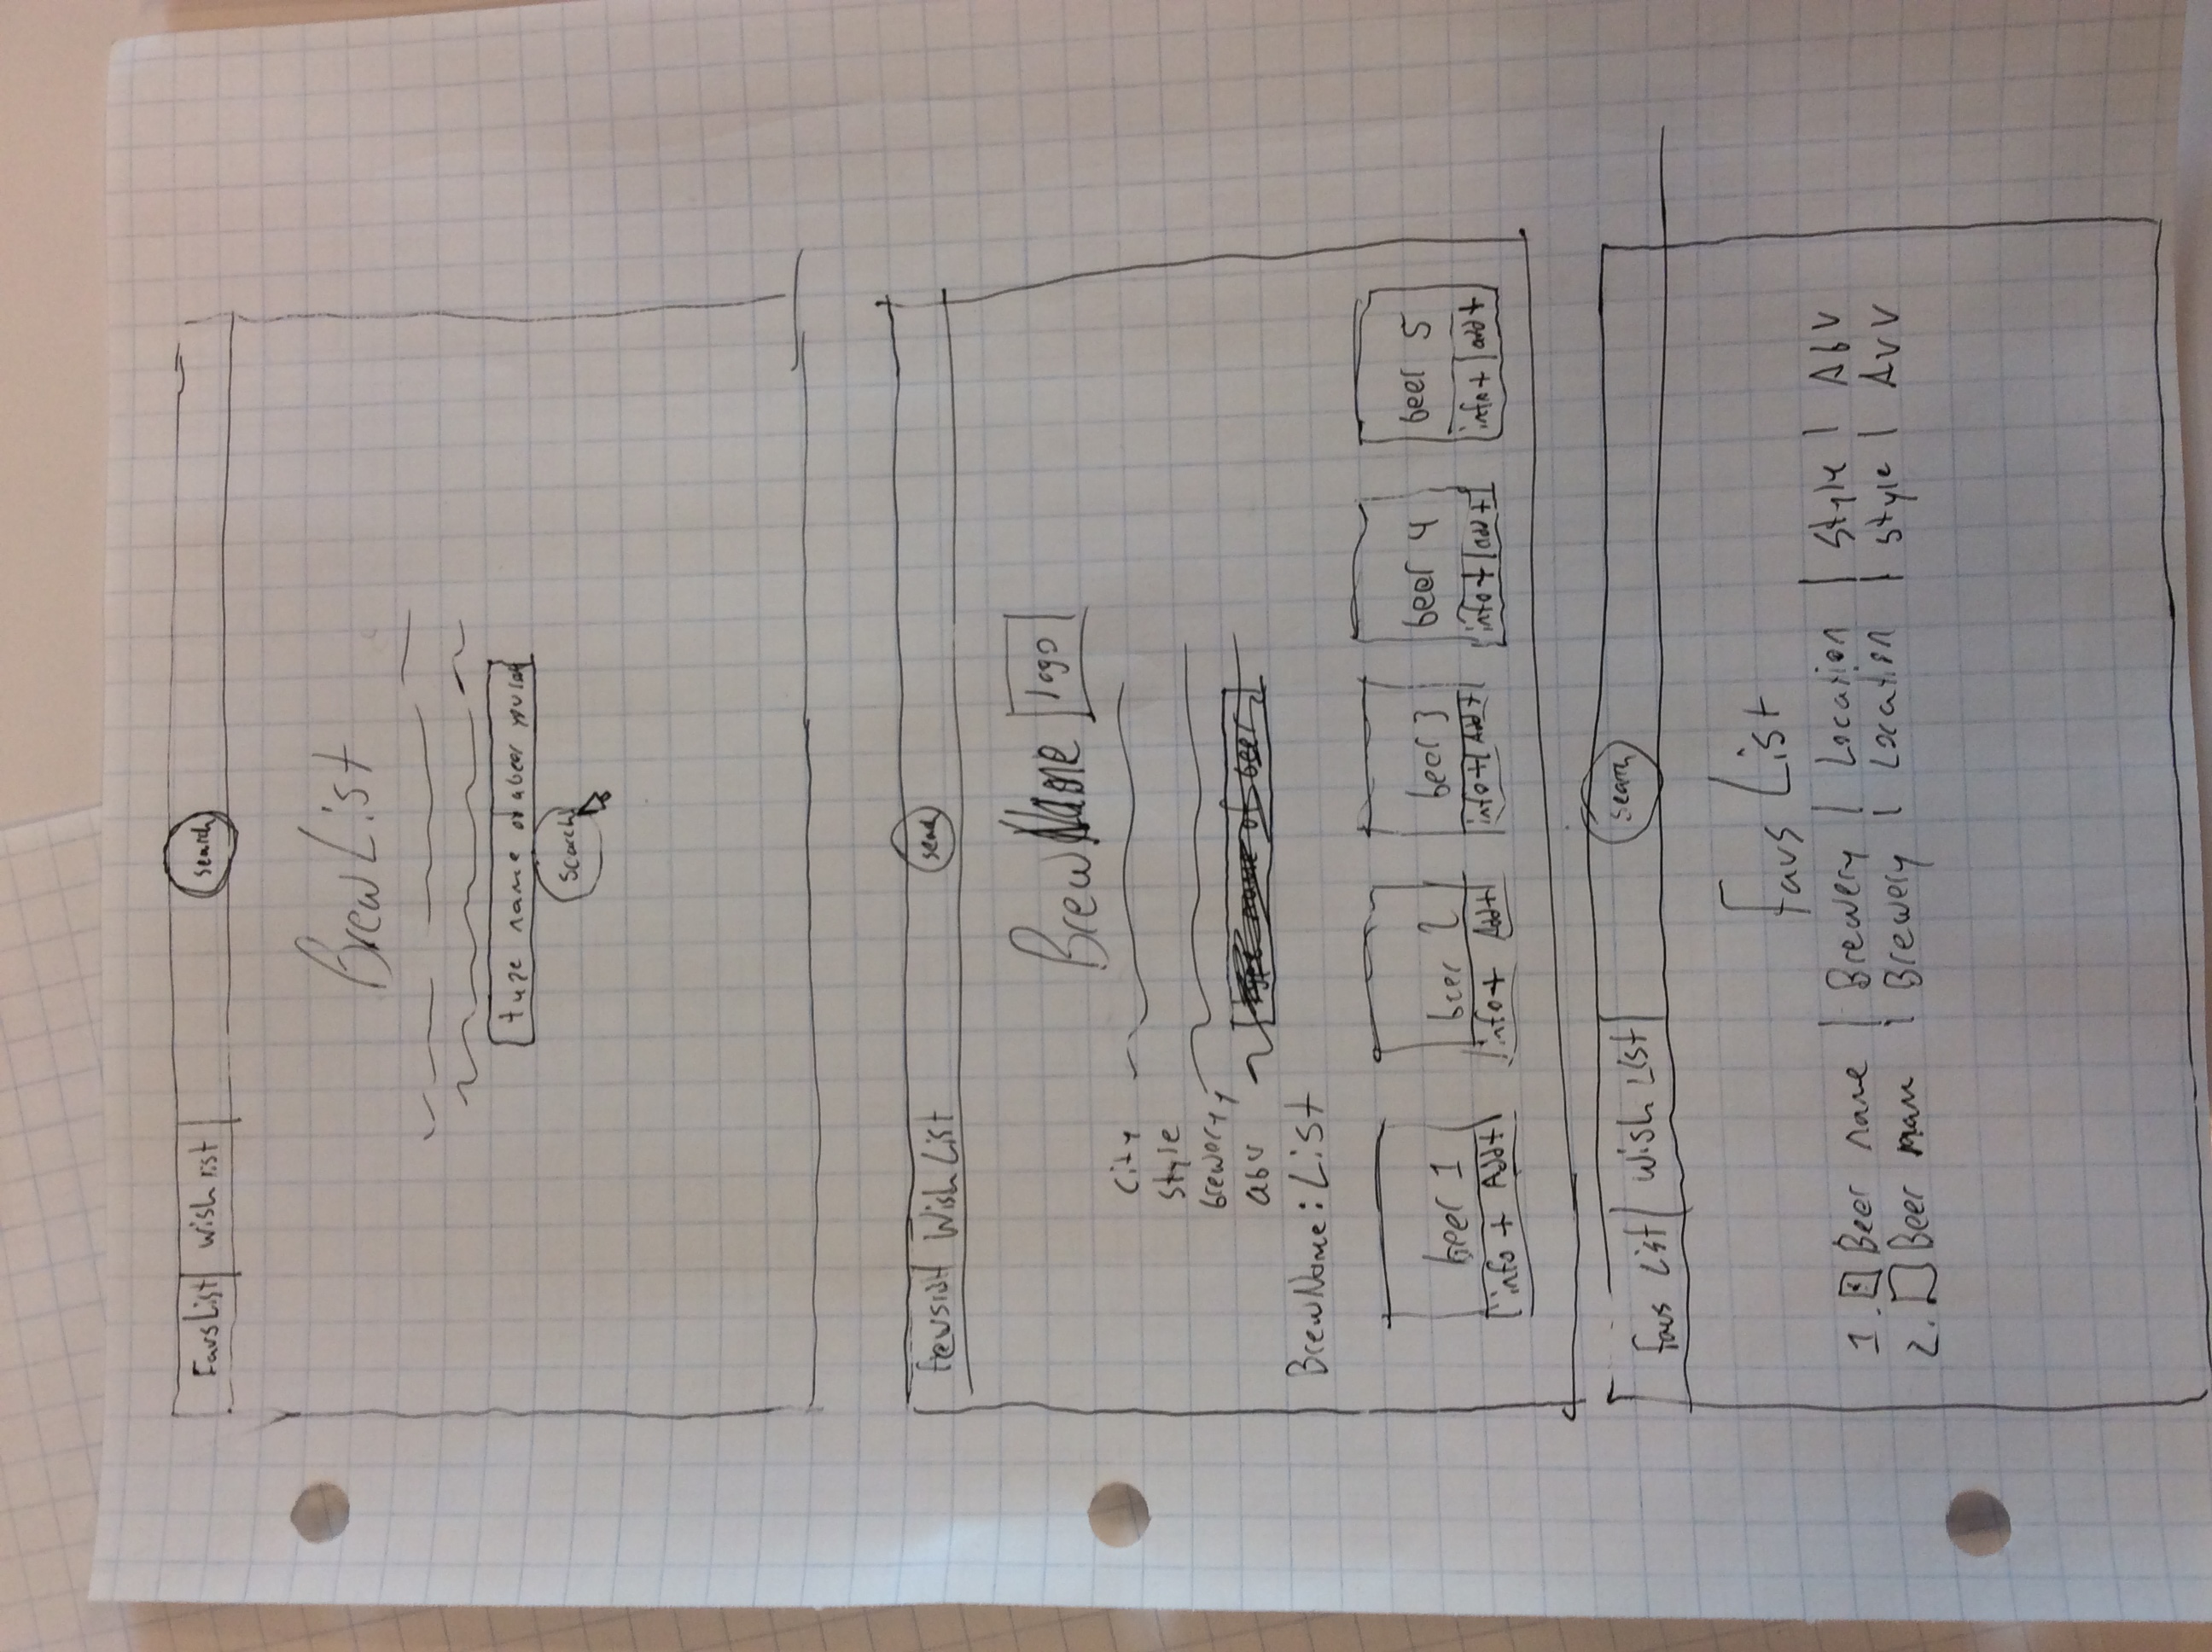 Favs List wish list search
BrewList
type name of a beer you
search
Wish List
Brew Name logo
City
Style
brewery
abv
type name of beer
BrewName: List
beer 1 beer 2 beer 3 beer 4 beer 5
info + Add+ info+ Add+ info+ Add+ info+ add+ info+ add+
Favs List Wish List search
Favs List
1. Beer name | Brewery | Location | Style | AbV
2. Beer | Brewery | Location | style |